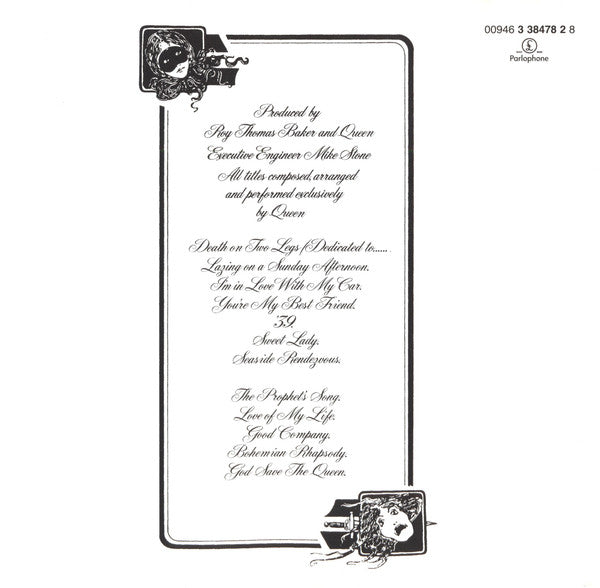 00946 3 38478 2 8
Parlophone
Produced by
Roy Thomas Baker and Queen
Executive Engineer Mike Stone
All titles composed, arranged
and performed exclusively
by Queen
Death on Two Legs (Dedicated to......
Lazing on a Sunday Afternoon.
I'm in Love With My Car.
You're My Best Friend.
'39.
Sweet Lady.
Seaside Rendezvous.
The Prophet's Song.
Love of My Life.
Good Company.
Bohemian Rhapsody.
God Save The Queen.